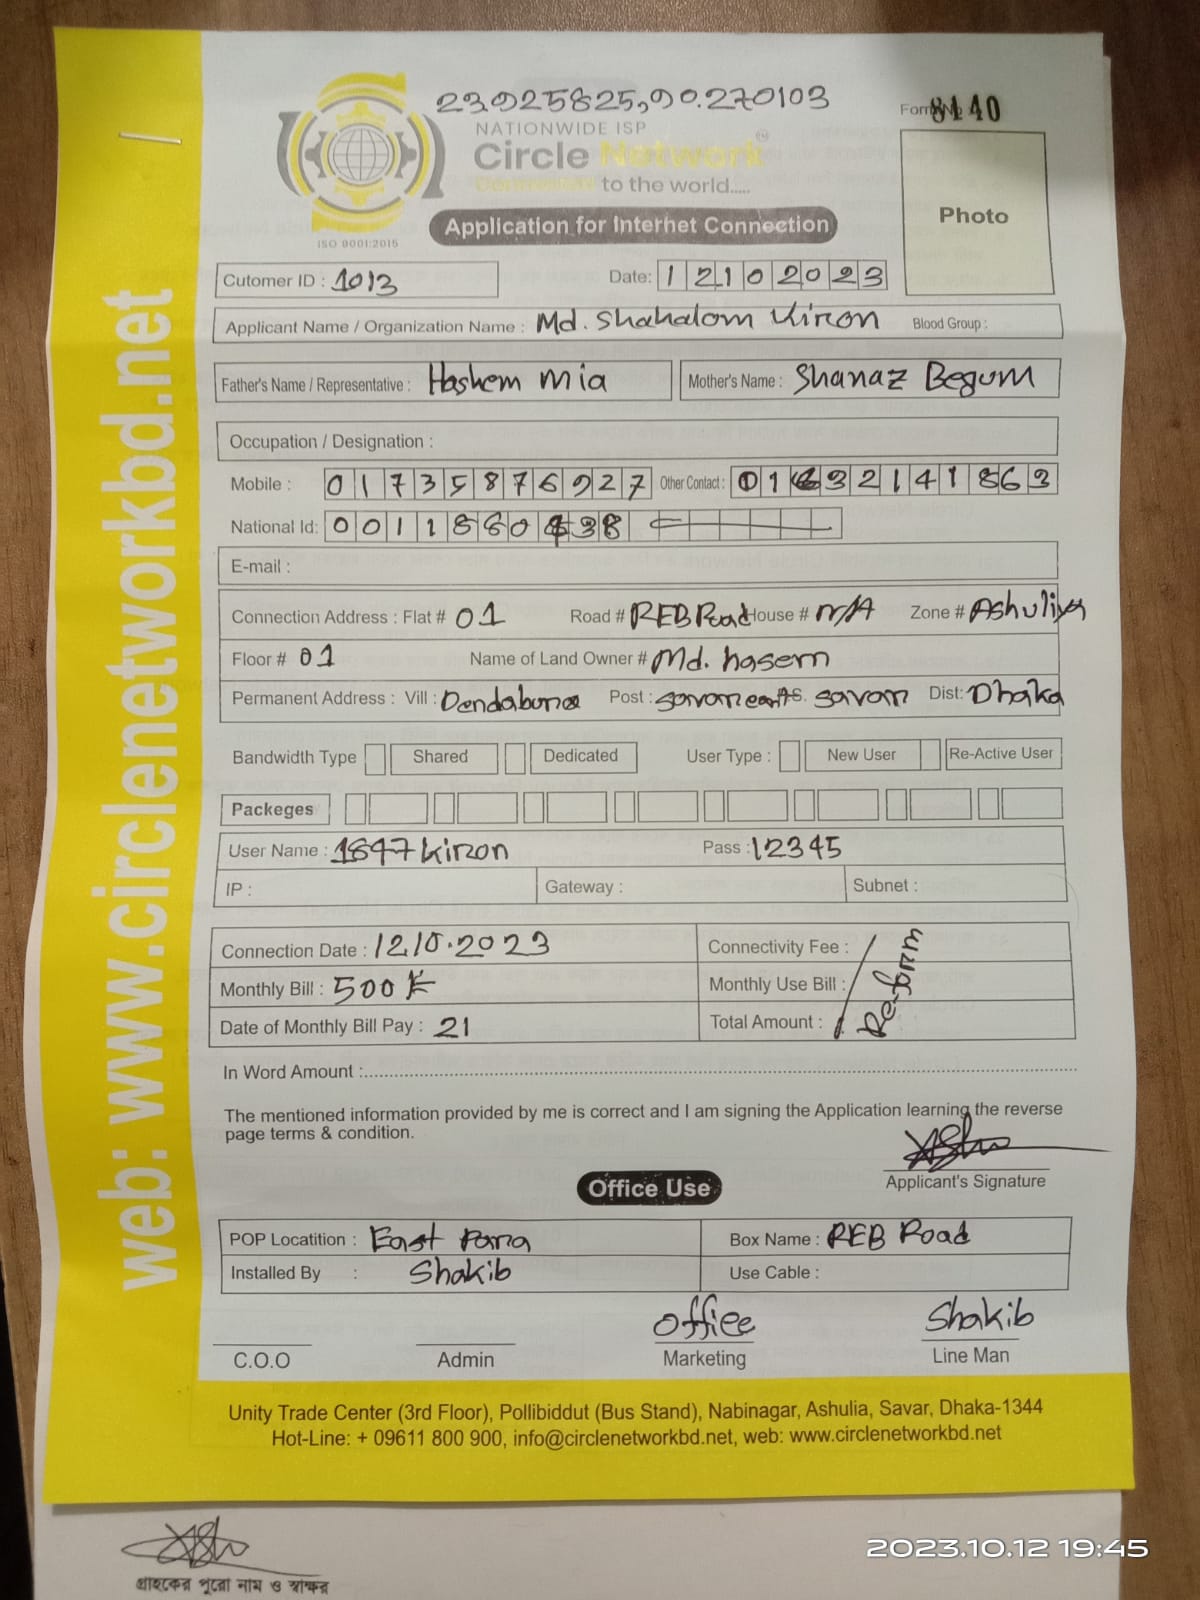 23.925825,90.270103
NATIONWIDE ISP
Form No 8140
Circle Network
Connection to the world.....
ISO 9001:2015
Application for Internet Connection
Photo
Cutomer ID : 1013 Date: 12102023
Applicant Name / Organization Name : Md. Shahalom Kiron Blood Group :
Father's Name / Representative : Hashem Mia Mother's Name : Shanaz Begum
Occupation / Designation :
Mobile : 01735876927 Other Contact : 01632141863
National Id: 0011880438
E-mail :
Connection Address : Flat # 01 Road # REB Road House # N/A Zone # Ashuliya
Floor # 01 Name of Land Owner # Md. hasem
Permanent Address : Vill : Dendabor Post : Savar cant P.S. Savar Dist: Dhaka
Bandwidth Type Shared Dedicated User Type : New User Re-Active User
Packeges
User Name : 1897kiron Pass : 12345
IP : Gateway : Subnet :
Connection Date : 12.10.2023 Connectivity Fee :
Monthly Bill : 500 Monthly Use Bill :
Date of Monthly Bill Pay : 21 Total Amount :
Re-form
In Word Amount :
The mentioned information provided by me is correct and I am signing the Application learning the reverse
page terms & condition.
Applicant's Signature
Office Use
POP Locatition : East Para Box Name : REB Road
Installed By : Shakib Use Cable :
office Shakib
C.O.O Admin Marketing Line Man
Unity Trade Center (3rd Floor), Pollibiddut (Bus Stand), Nabinagar, Ashulia, Savar, Dhaka-1344
Hot-Line: + 09611 800 900, info@circlenetworkbd.net, web: www.circlenetworkbd.net
web: www.circlenetworkbd.net
গ্রাহকের পুরো নাম ও স্বাক্ষর
2023.10.12 19:45